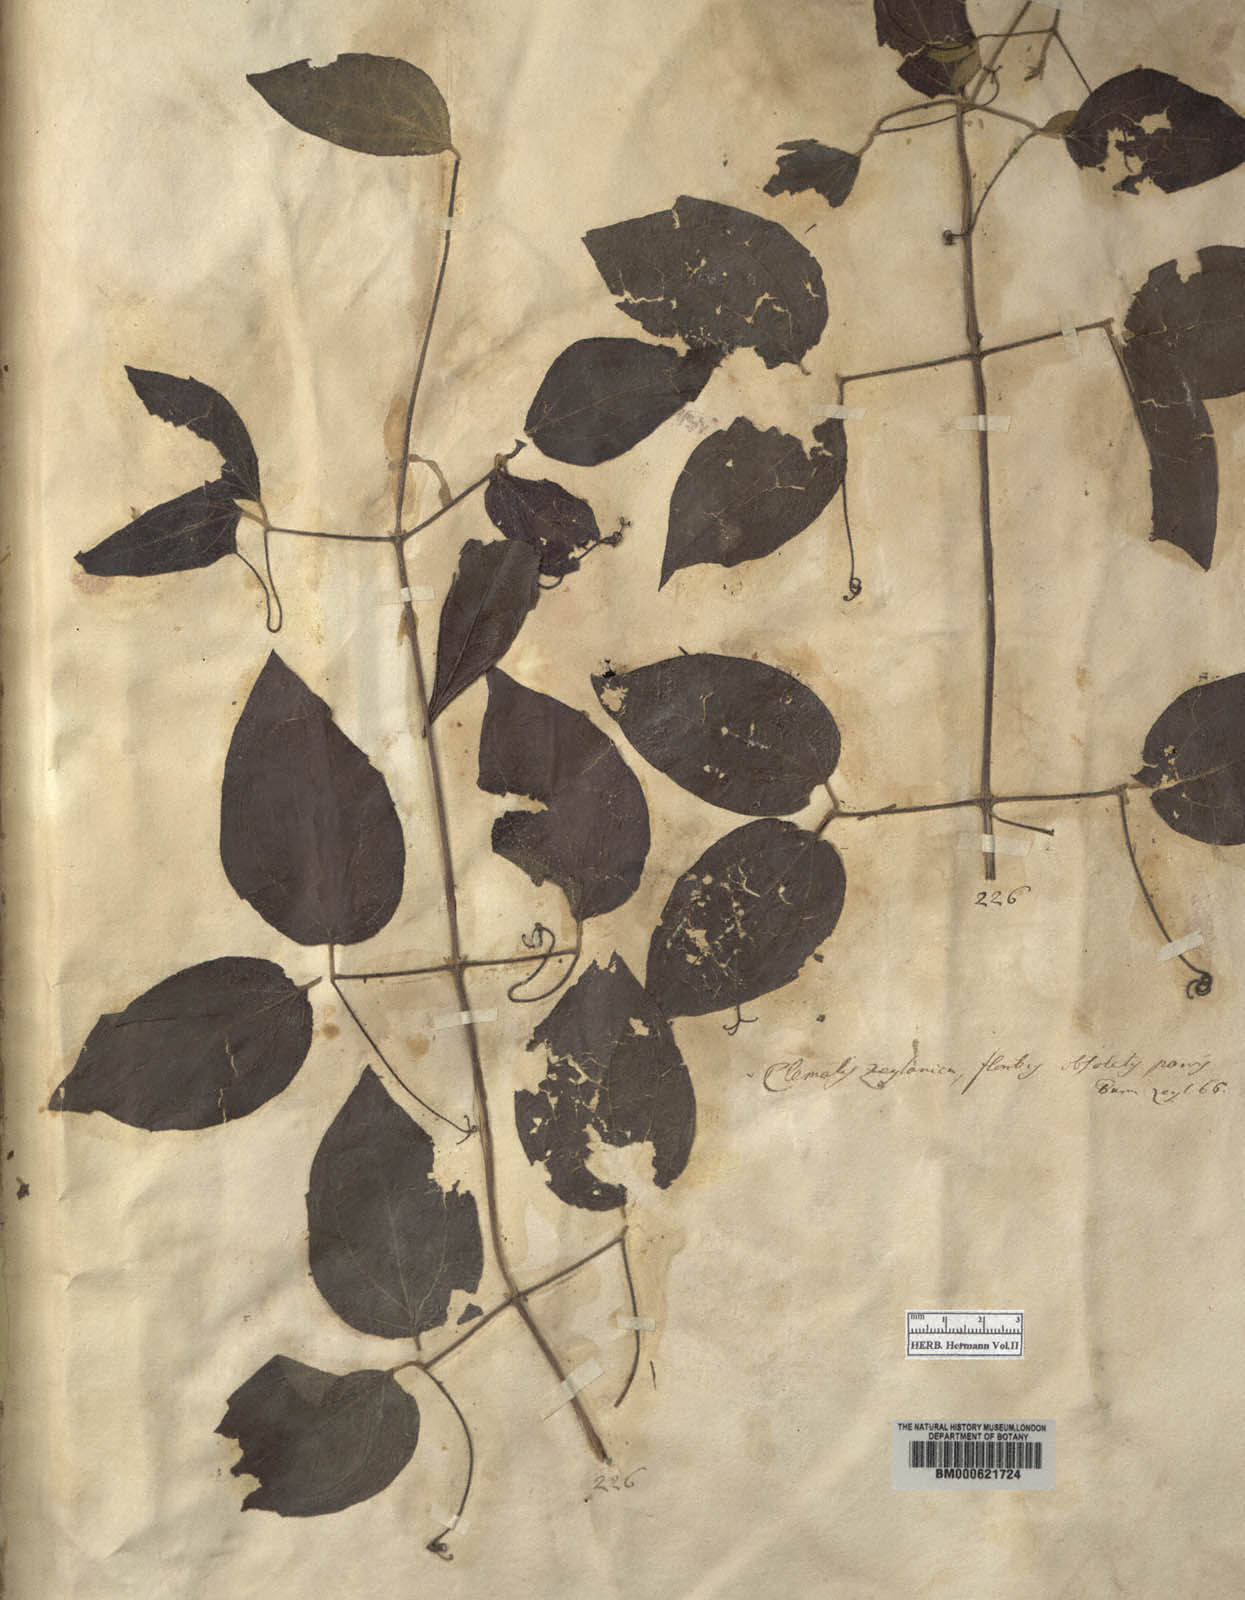 226
Clematis zeylanica,
Burm. zeyl. 66.
mm 1 2 3
HERB. Hermann Vol.II
THE NATURAL HISTORY MUSEUM,LONDON
DEPARTMENT OF BOTANY
BM000621724
226